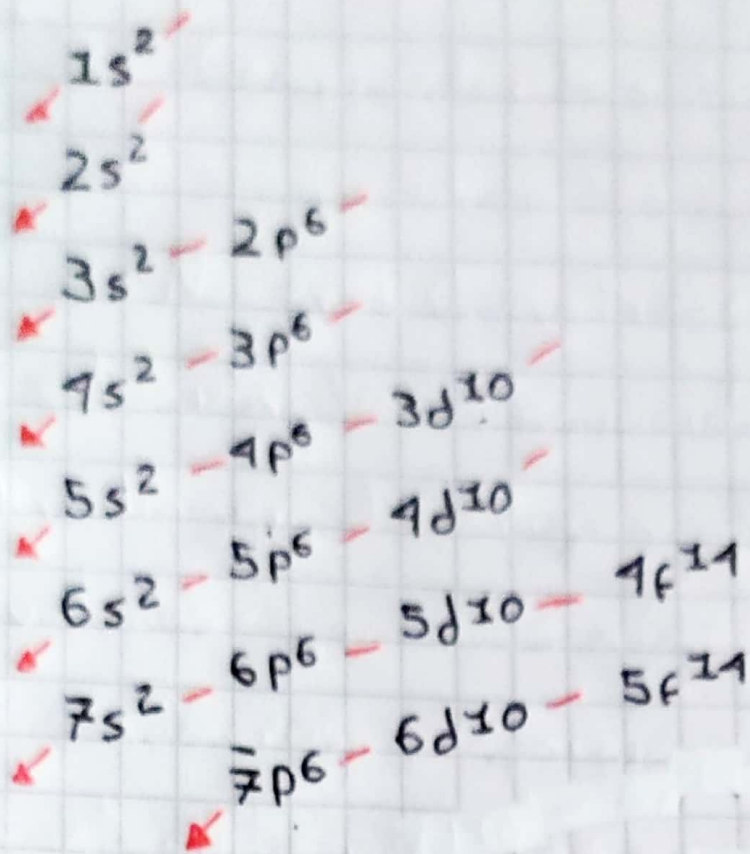 1s²
2s²
3s² 2p⁶
4s² 3p⁶
5s² 4p⁶ 3d¹⁰
6s² 5p⁶ 4d¹⁰
7s² 6p⁶ 5d¹⁰ 4f¹⁴
7p⁶ 6d¹⁰ 5f¹⁴